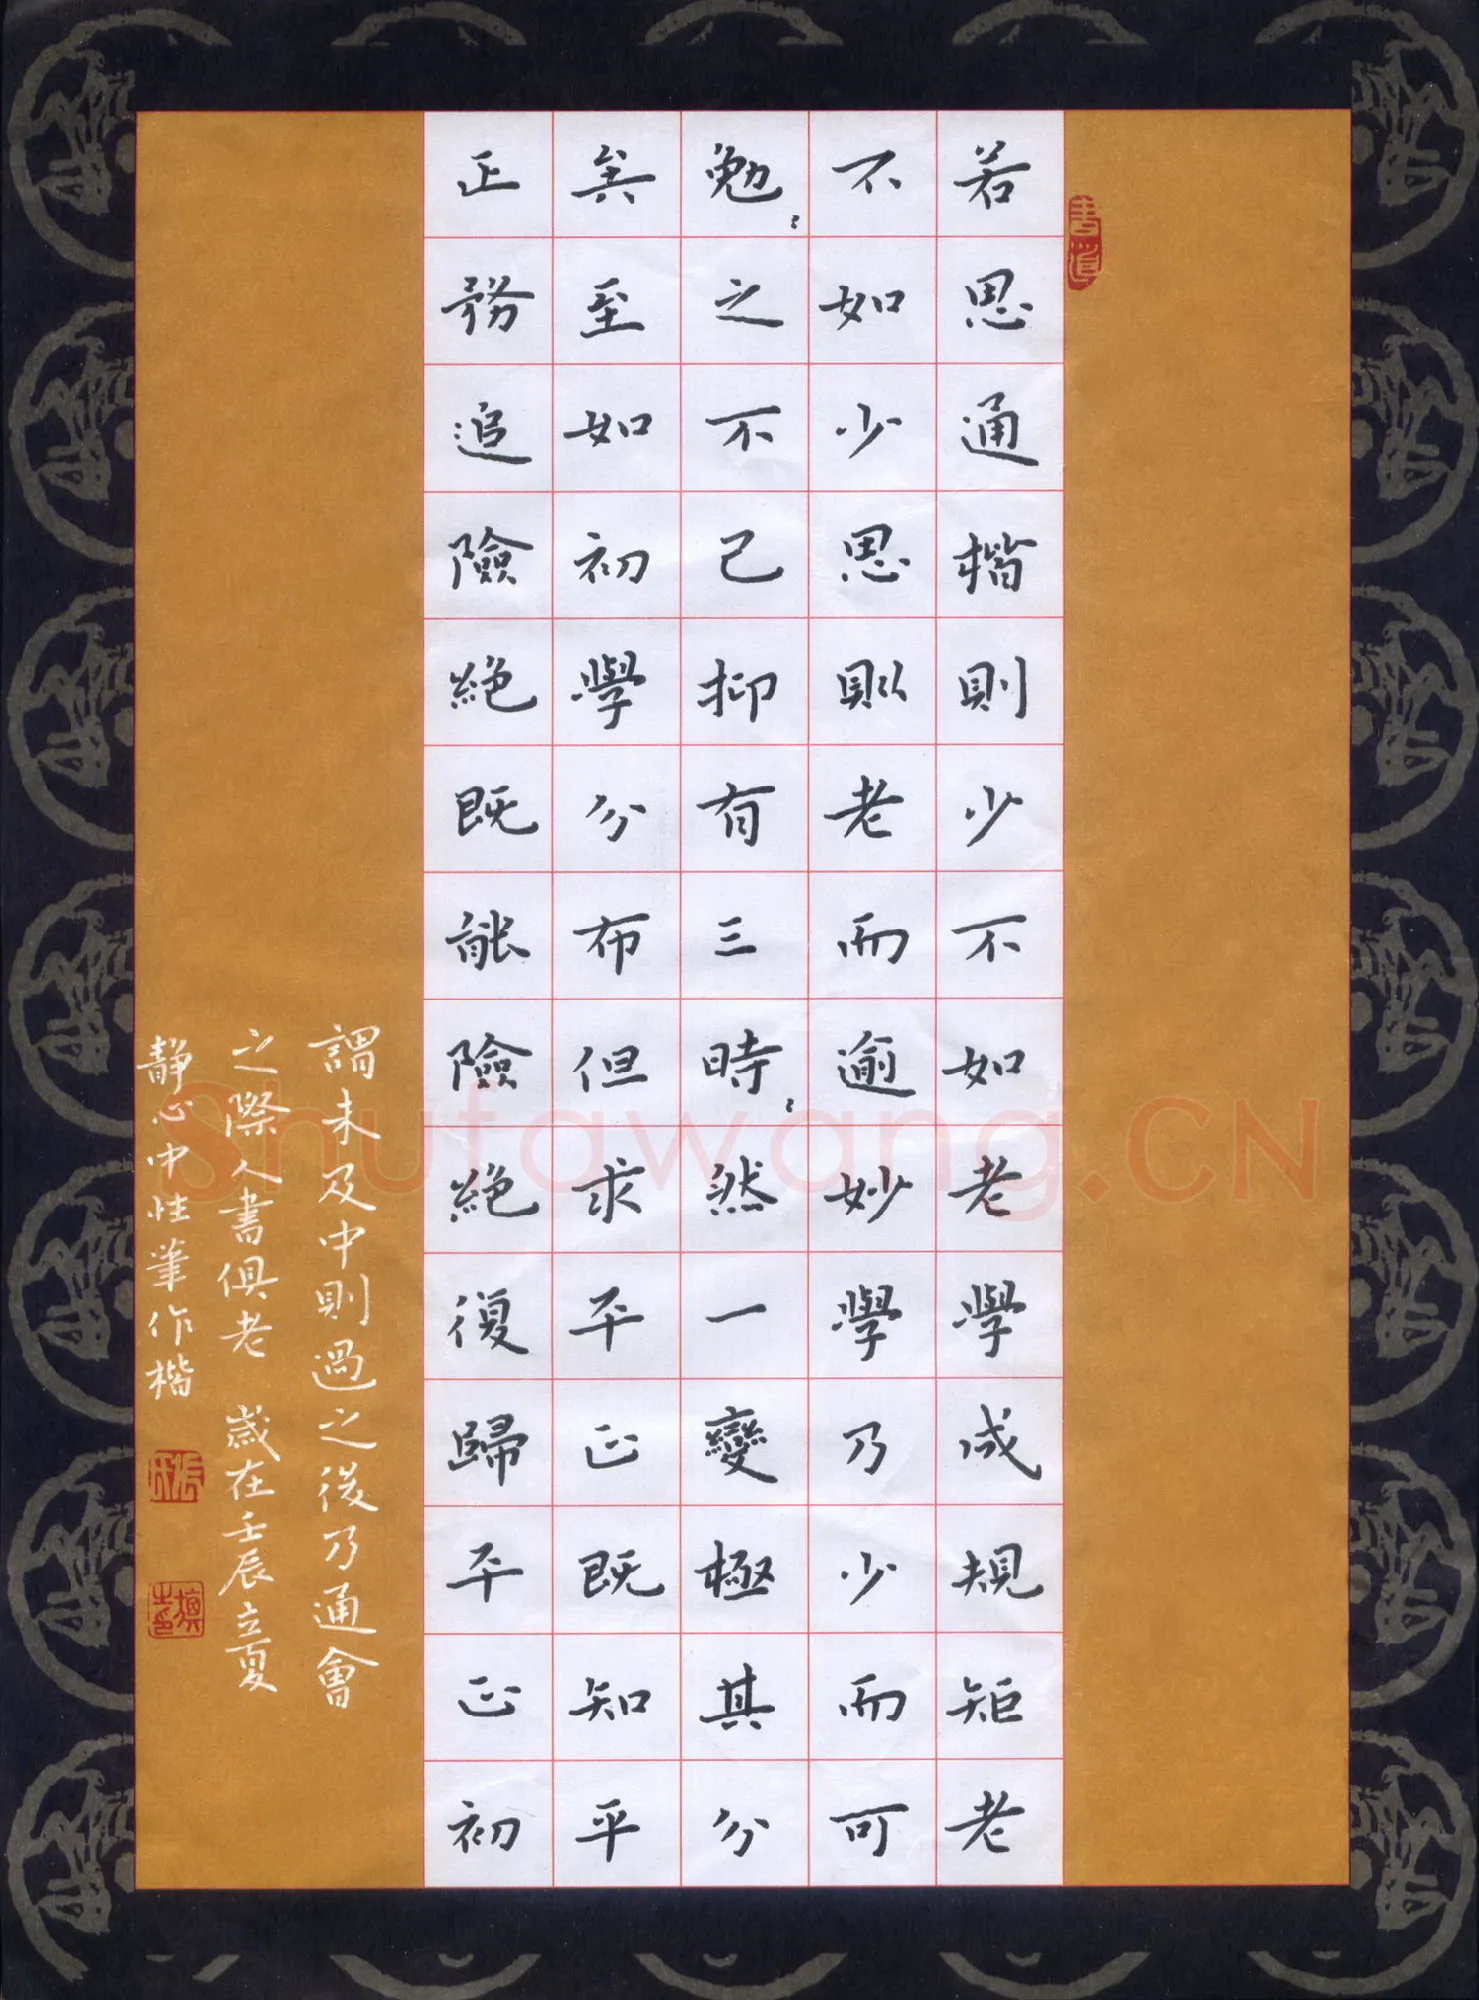 書道
若思通楷則少不如老學成規矩老
不如少思則老而逾妙學乃少而可
勉〻之不已抑有三時〻然一變極其分
矣至如初學分布但求平正既知平
正務追險絕既能險絕復歸平正初
謂未及中則過之後乃通會
之際人書俱老 歲在壬辰立夏
静心中性筆作楷
張氏
Shufawang.CN